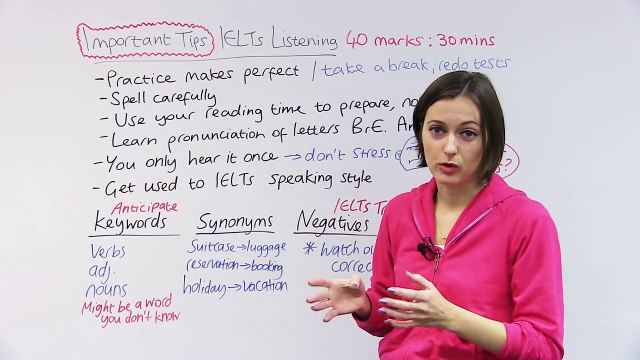 Important Tips IELTs Listening 40 marks : 30mins
- Practice makes perfect / take a break, redo tests
- Spell carefully
- Use your reading time to prepare,
- Learn pronunciation of letters Br.E.
- You only hear it once → don't stress
- Get used to IELTs speaking style
Anticipate
Keywords
verbs
adj.
nouns
Might be a word
you don't know
Synonyms
Suitcase → luggage
reservation → booking
holiday → vacation
IELTs
Negatives
* watch